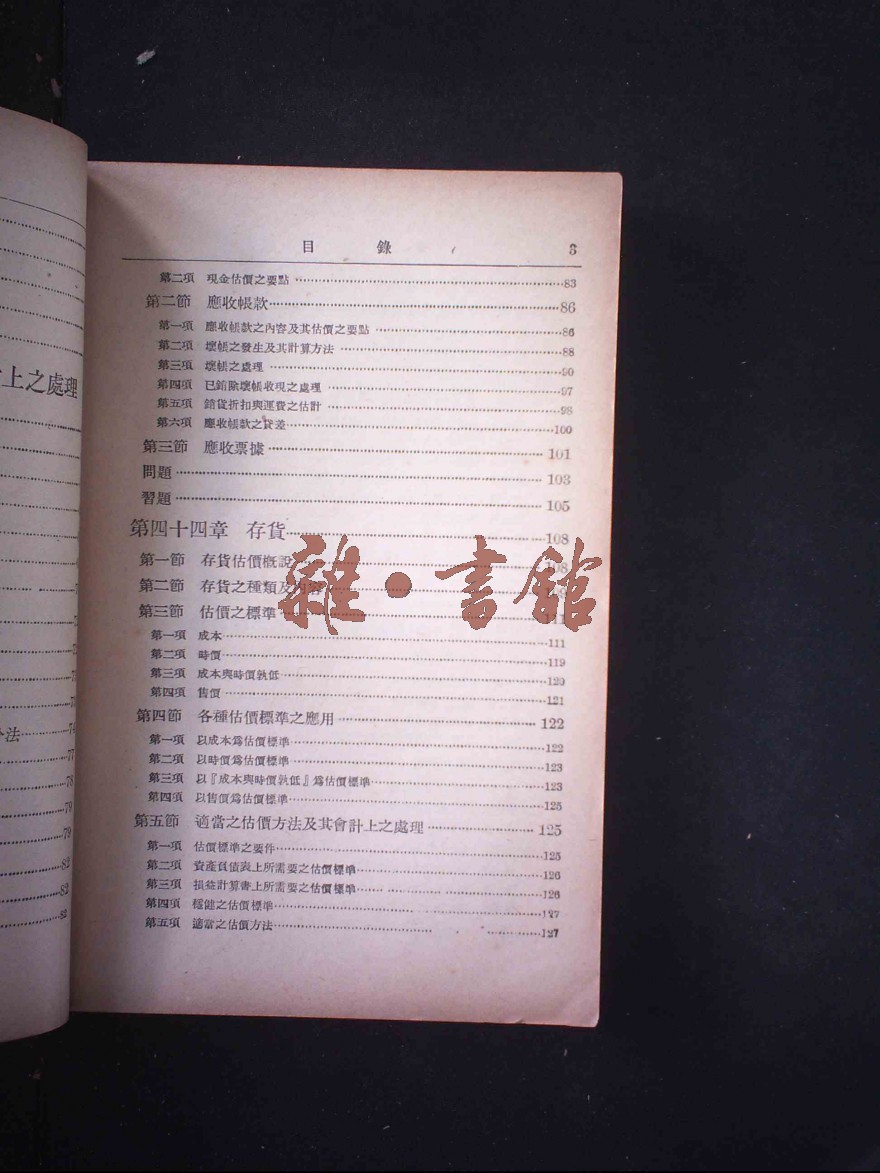 上之處理
法
74
77
78
79
79
82
82
82
目 錄 3
第二項 現金估價之要點 83
第二節 應收帳款 86
第一項 應收帳款之內容及其估價之要點 86
第二項 壞帳之發生及其計算方法 88
第三項 壞帳之處理 90
第四項 已銷除壞帳收現之處理 97
第五項 銷貨折扣與運費之估計 98
第六項 應收帳款之貸差 100
第三節 應收票據 101
問題 103
習題 105
第四十四章 存貨 108
第一節 存貨估價槪說 108
第二節 存貨之種類及內容
第三節 估價之標準 111
第一項 成本 111
第二項 時價 119
第三項 成本與時價孰低 120
第四項 售價 121
第四節 各種估價標準之應用 122
第一項 以成本爲估價標準 122
第二項 以時價爲估價標準 123
第三項 以『成本與時價孰低』爲估價標準 123
第四項 以售價爲估價標準 125
第五節 適當之估價方法及其會計上之處理 125
第一項 估價標準之要件 125
第二項 資產負債表上所需要之估價標準 126
第三項 損益計算書上所需要之估價標準 126
第四項 穩健之估價標準 127
第五項 適當之估價方法 127
雜·書館